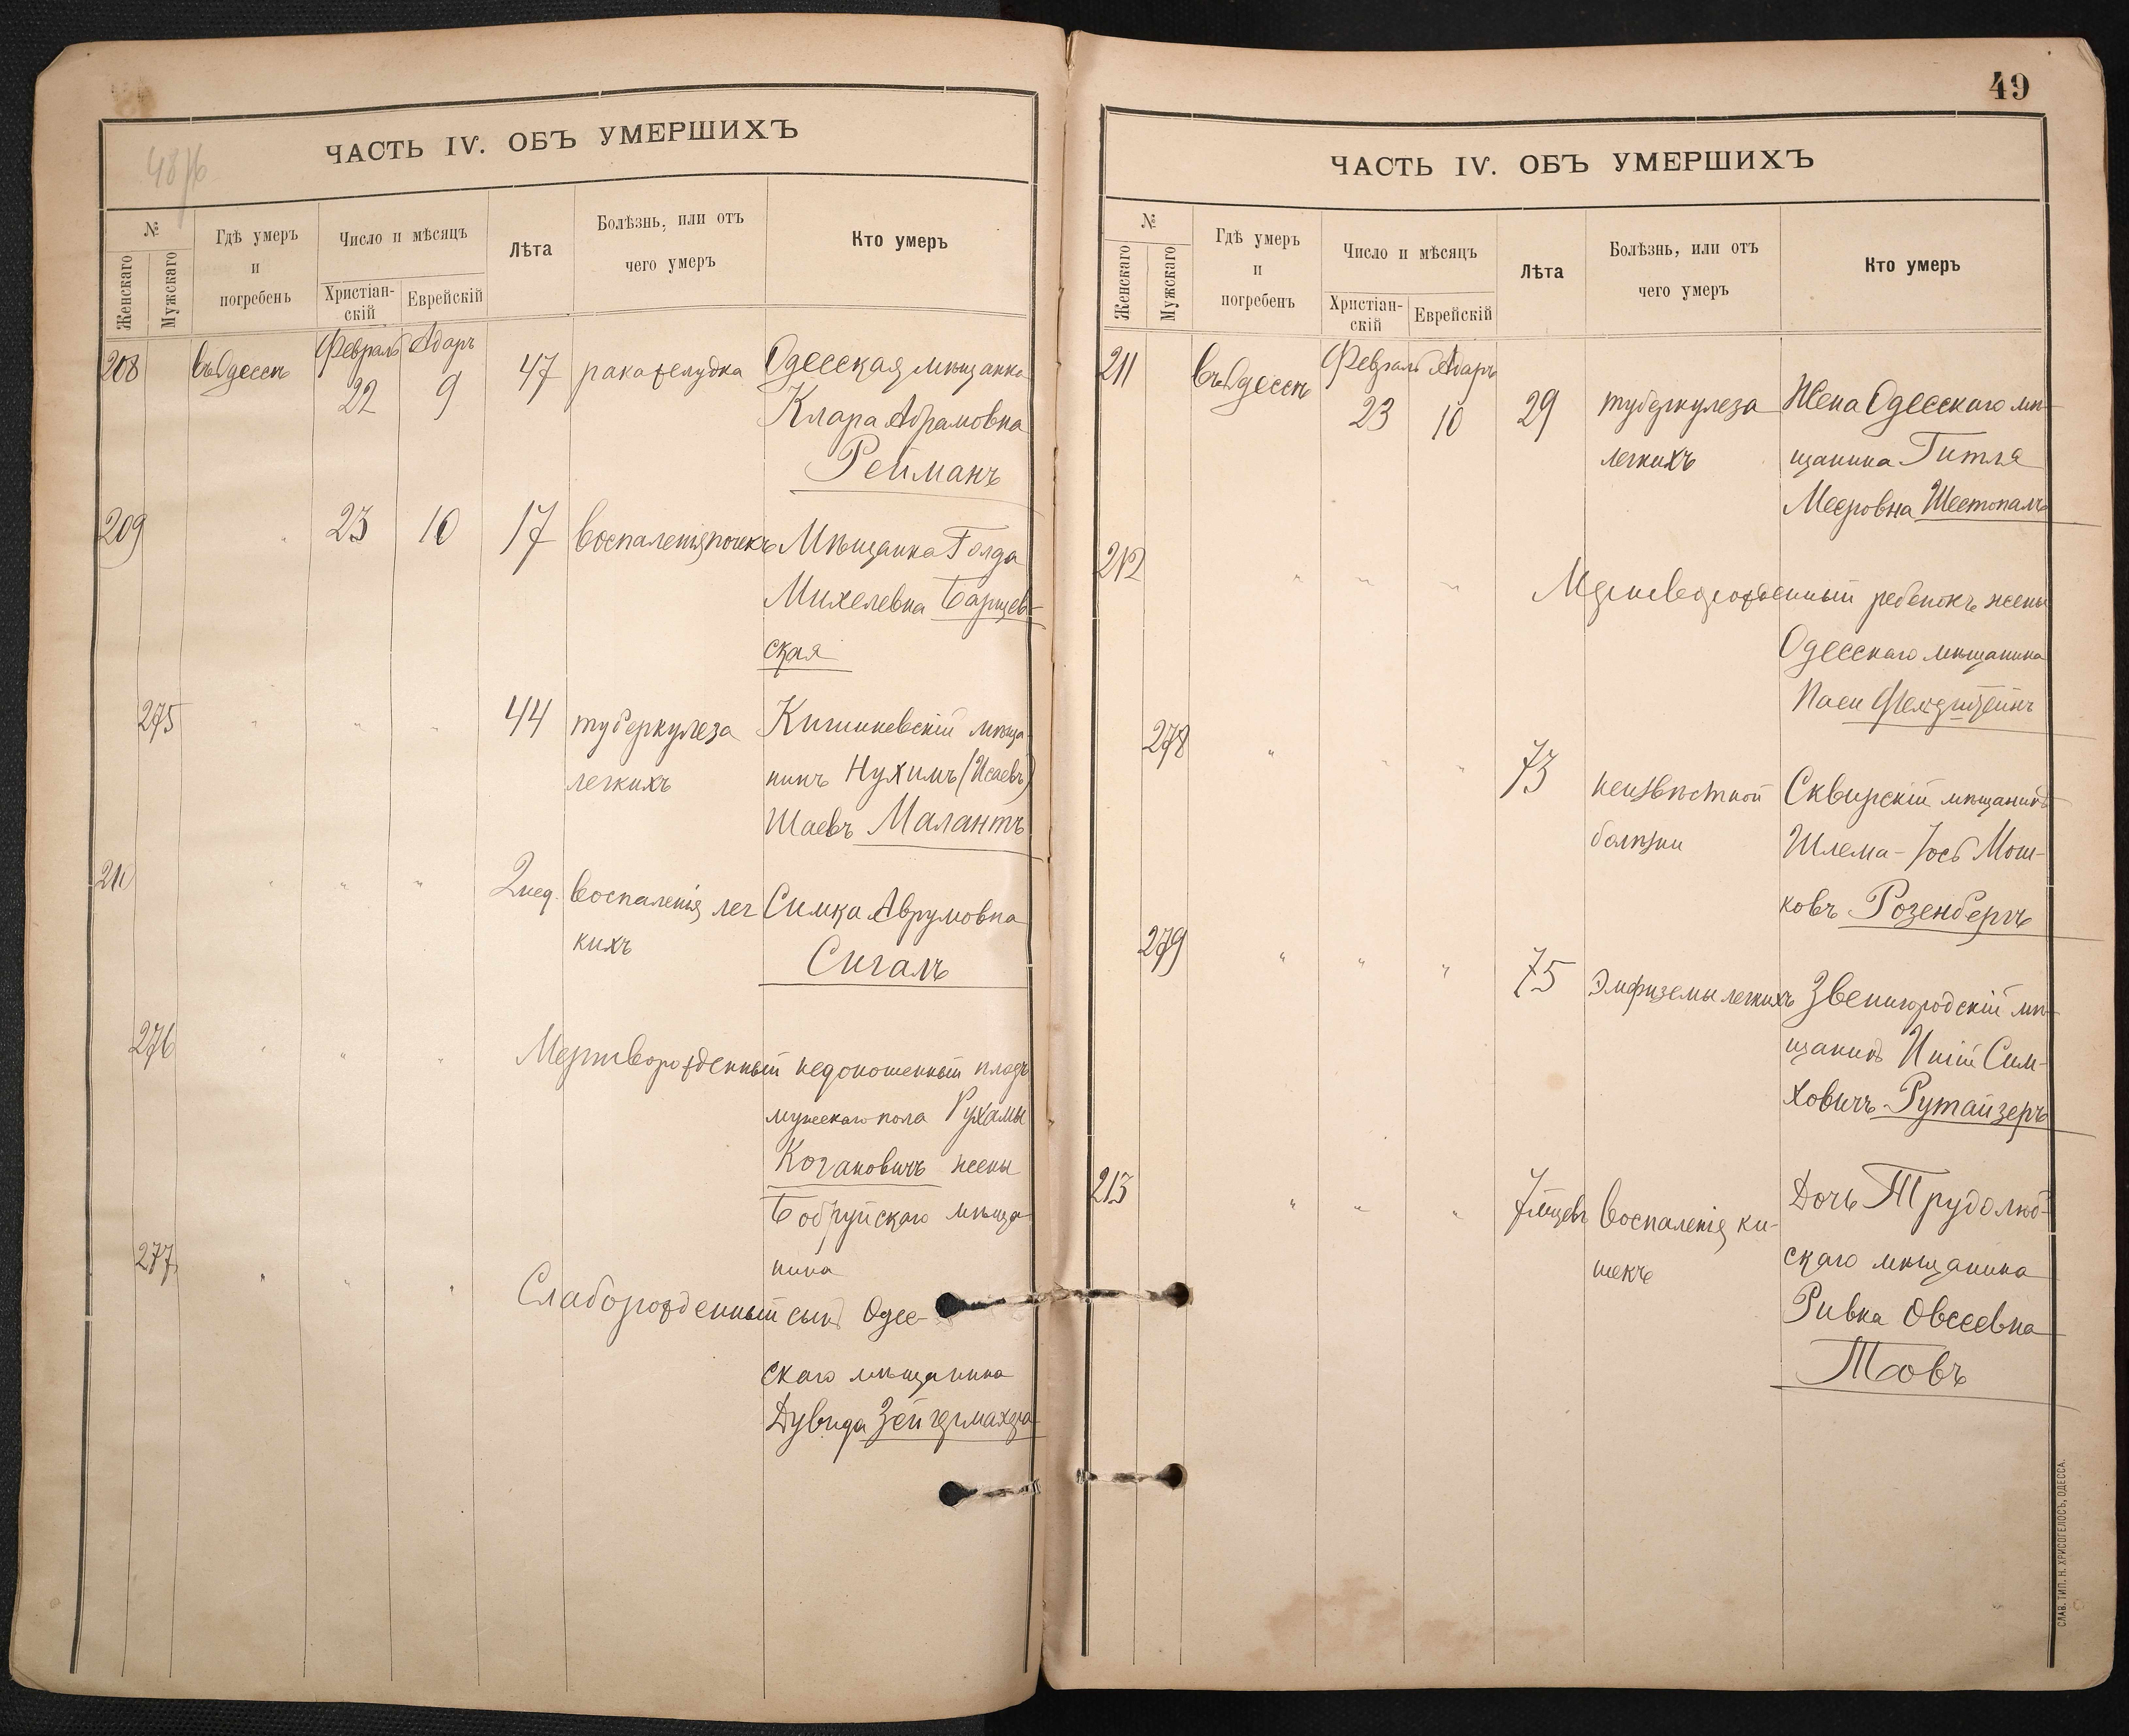 48об
ЧАСТЬ IV. ОБЪ УМЕРШИХЪ
№
Женскаго
Мужскаго
Гдѣ умеръ
и
погребенъ
Число и мѣсяцъ
Христіан-
скій
Еврейскій
Лѣта
Болѣзнь, или отъ
чего умеръ
Кто умеръ
208 въ Одессѣ Февраль Адаръ
22 9 47 рака желудка Одесская мѣщанка
Клара Абрамовна
Рейманъ
209 " 23 10 17 Воспаленія почекъ Мѣщанка Голда
Михелевна Барщев-
ская
275 " " " 44 туберкулеза Кишиневскій мѣща-
легкихъ нинъ Нухимъ (Исаевъ)
Шаевъ Малантъ
210 " " " 2 нед. Воспаленія лег Симка Аврумовна
кихъ
Сигалъ
276 " " " Мертворожденный недоношенный плодъ
мужескаго пола Рухамы
Когановичъ жены
Бобруйскаго мѣща-
нина
277 " " " Слаборожденный сынъ Одес-
скаго мѣщанина
Дувида Зейгермахера
49
ЧАСТЬ IV. ОБЪ УМЕРШИХЪ
№
Женскаго
Мужскаго
Гдѣ умеръ
и
погребенъ
Число и мѣсяцъ
Христіан-
скій
Еврейскій
Лѣта
Болѣзнь, или отъ
чего умеръ
Кто умеръ
211 въ Одессѣ Февраль Адаръ
23 10 29 туберкулеза Жена Одесскаго мѣ-
легкихъ щанина Гитля
Мееровна Шестопалъ
212 " " " Мертворожденный ребенокъ жены
Одесскаго мѣщанина
Паси Фельдштейнъ
278 " " " 73 неизвѣстной Сквирскій мѣщанинъ
болѣзни Шлема-Іось Мош-
ковъ Розенбергъ
279 " " " 75 Эмфиземы легкихъ Звенигородскій мѣ-
щанинъ Иній Сим-
ховичъ Рутайзеръ
213 " " " 7 мѣсцевъ Воспаленія ки- Дочь Трудолюб-
шекъ скаго мѣщанина
Ривка Овсеевна
Товъ
СЛАВ. ТИП. Н. ХРИСОГЕЛОСЪ, ОДЕССА.